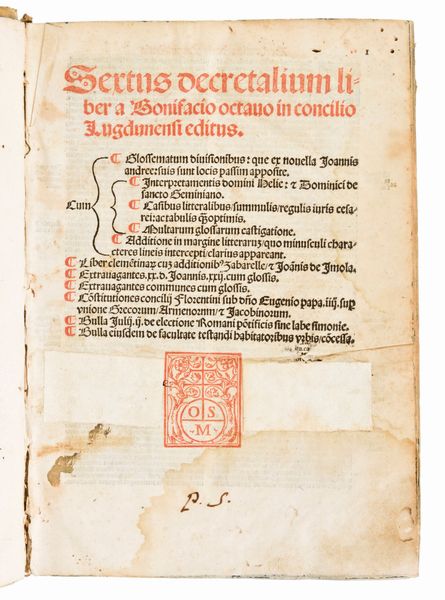 1
Sextus decretalium li-
ber a Bonifacio octauo in concilio
Lugdunensi editus.
¶ Glossematum diuisionibus: que ex nouella Joannis
andree: suis sunt locis passim apposite.
¶ Interpretamentis domini Helie: ⁊ Dominici de
sancto Geminiano.
Cum
¶ Casibus litteralibus/summulis/regulis iuris cesa-
rei: ac tabulis q̃optimis.
¶ Multarum glossarum castigatione.
¶ Additione in margine litteraruȝ/quo minusculi chara-
cteres lineis intercepti/clarius appareant.
¶ Liber clemẽtinaꝝ cuȝ additionibꝰ Zabarelle/⁊ Joãnis de Jmola.
¶ Extrauagantes .xx. d. Joannis .xxij. cum glossis.
¶ Extrauagantes communes cum glossis.
¶ Cõstitutiones concilij Florentini sub dño Eugenio papa .iiij. sup
vnione Grecorum/Armenorum/⁊ Jacobinorum.
¶ Bulla Julij .ij. de electione Romani põtificis sine labe simonie.
¶ Bulla eiusdem de facultate testandi habitatoribus vrbis/cõcessa.
O S
M
P. S.